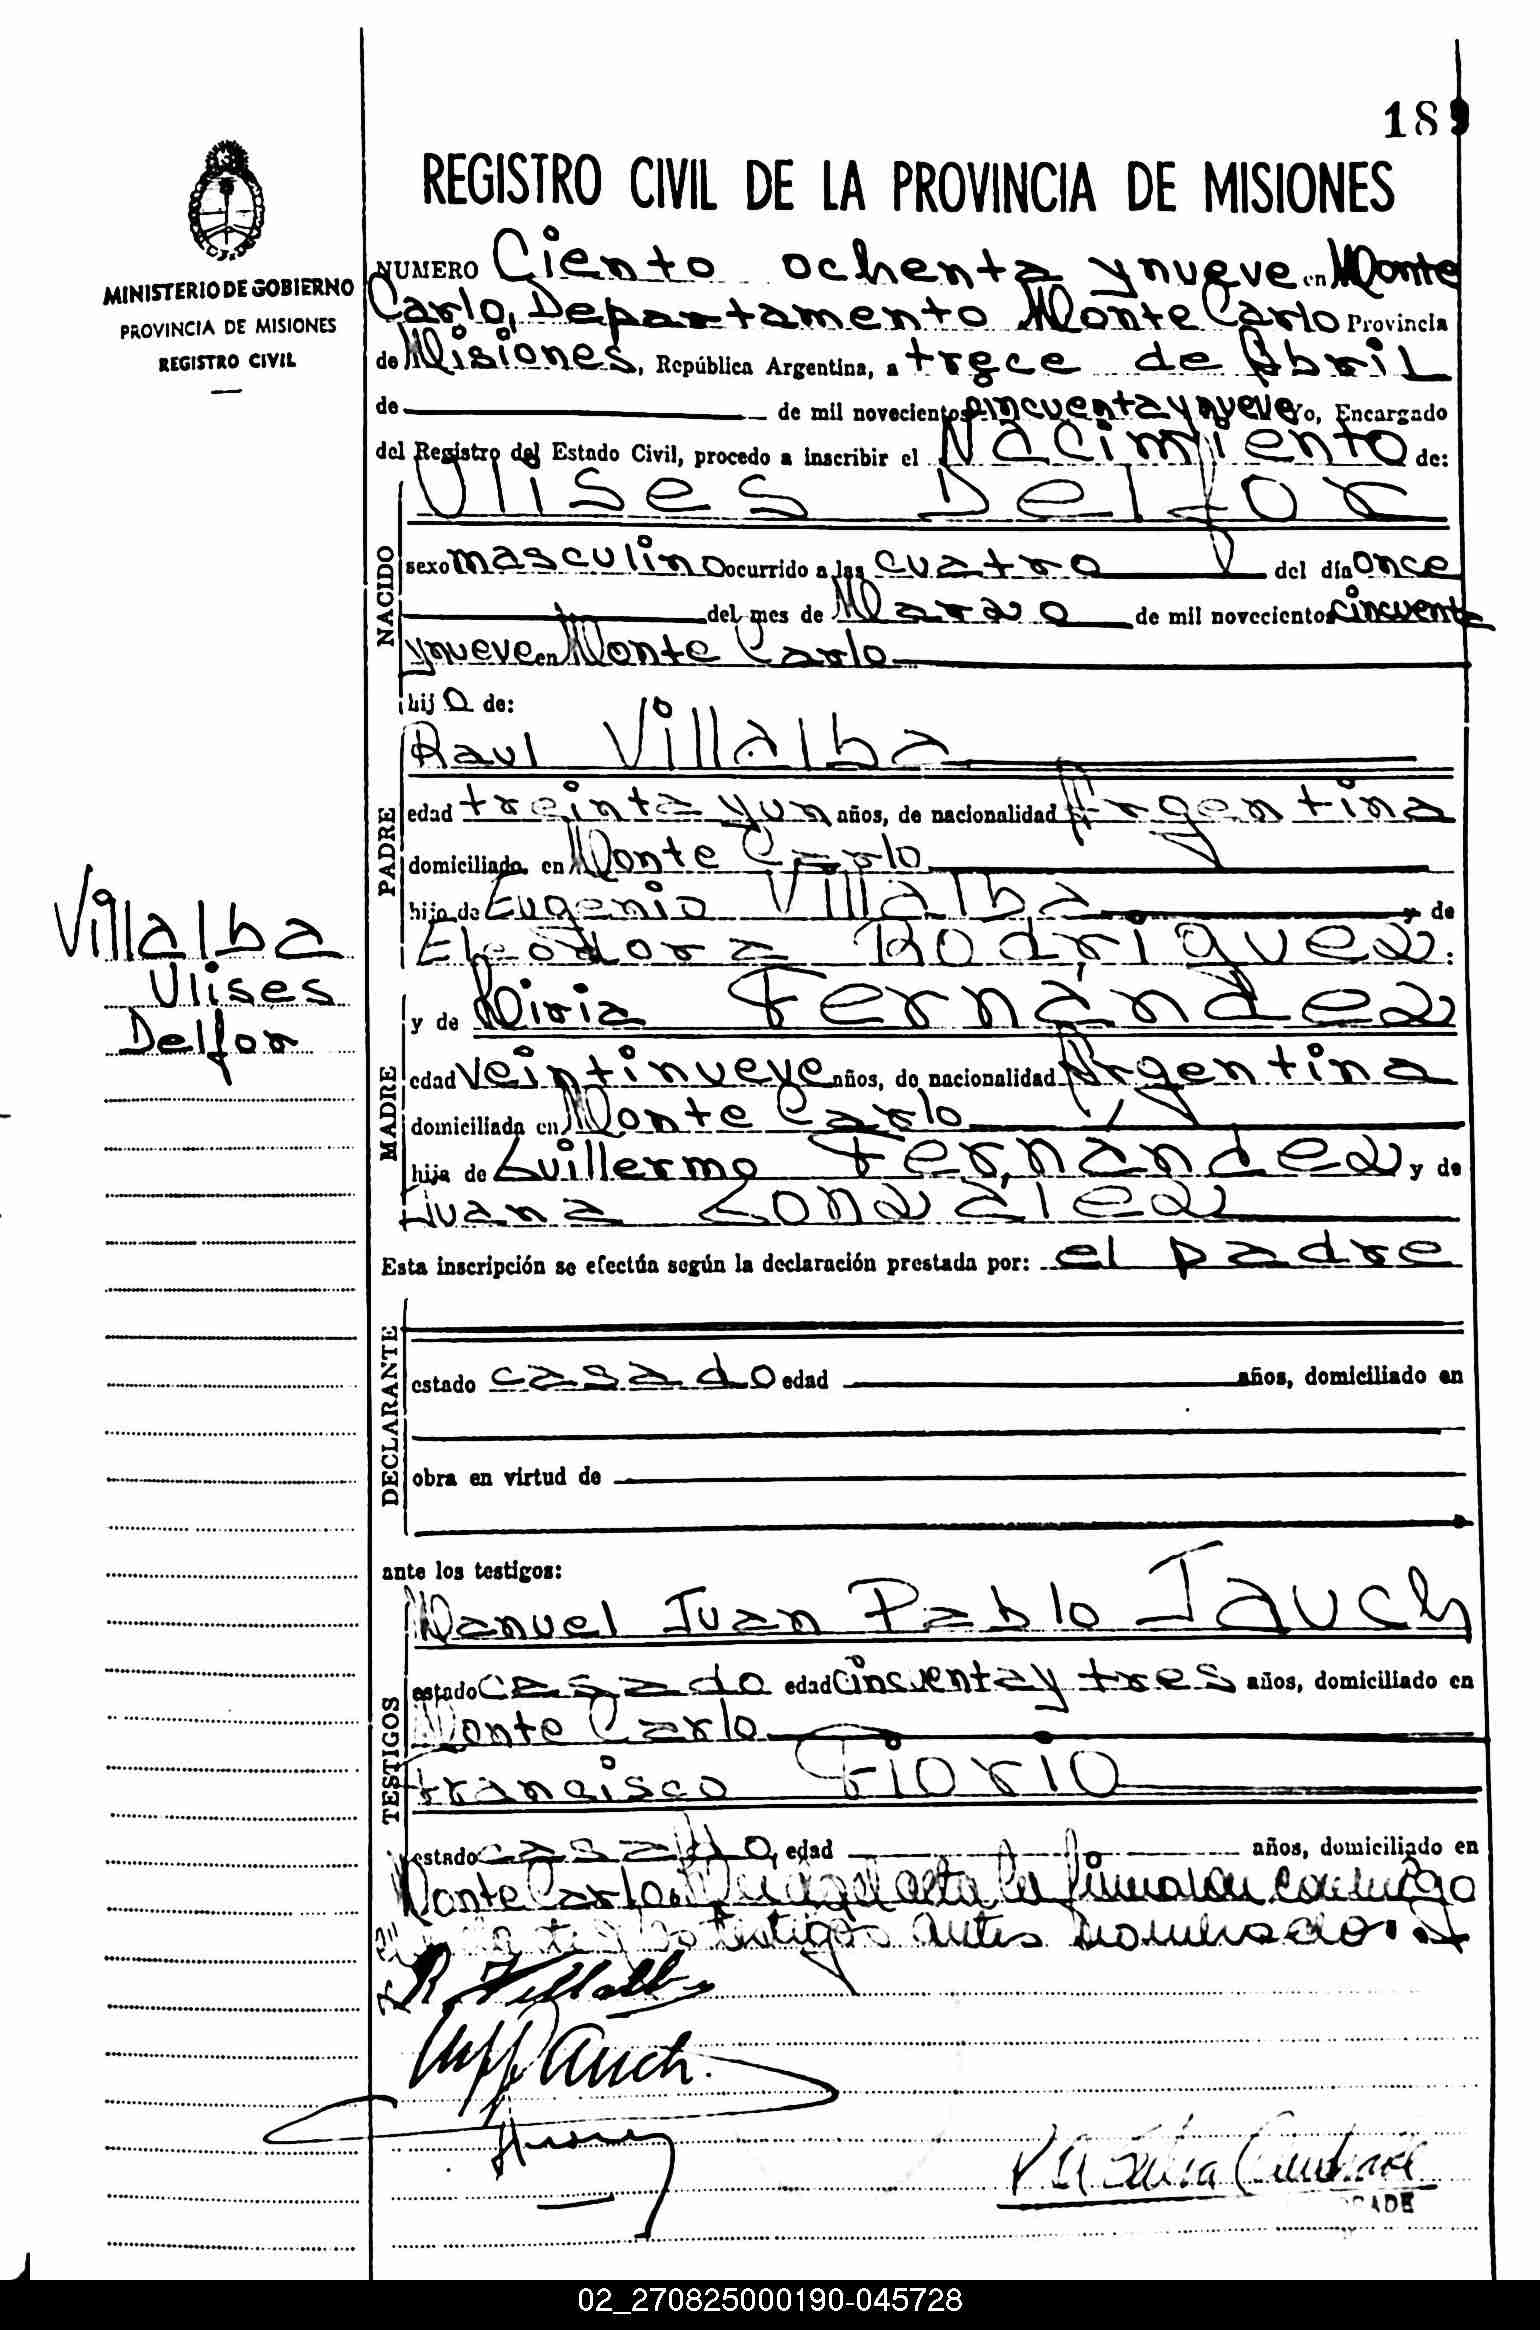 189
REGISTRO CIVIL DE LA PROVINCIA DE MISIONES
MINISTERIO DE GOBIERNO
PROVINCIA DE MISIONES
REGISTRO CIVIL
NUMERO Ciento ochenta y nueve en Monte
Carlo, Departamento Monte Carlo Provincia
de Misiones, República Argentina, a trece de Abril
de de mil novecientos cincuenta y nueve Yo, Encargado
del Registro del Estado Civil, procedo a inscribir el Nacimiento de:
NACIDO
Ulises Delfor
sexo masculino ocurrido a las cuatro del día once
del mes de Marzo de mil novecientos cincuenta
y nueve en Monte Carlo
hijo de:
PADRE
Raul Villalba
edad treinta y un años, de nacionalidad Argentina
domiciliado en Monte Carlo
hijo de Eugenio Villalba y de
Eleodora Rodriguez.
Villalba
Ulises
Delfor
MADRE
y de Miria Fernández
edad veintinueve años, de nacionalidad Argentina
domiciliada en Monte Carlo
hija de Guillermo Fernández y de
Juana Gonzalez
Esta inscripción se efectúa según la declaración prestada por: el padre
DECLARANTE
estado casado edad años, domiciliado en
obra en virtud de
ante los testigos:
TESTIGOS
Manuel Juan Pablo Jauch
estado casado edad cincuenta y tres años, domiciliado en
Monte Carlo
Francisco Fiorio
estado casado, edad años, domiciliado en
Monte Carlo. el acta la firmaron conmigo
testigos antes nombrados.
R Villalba
Jauch.
02_270825000190-045728